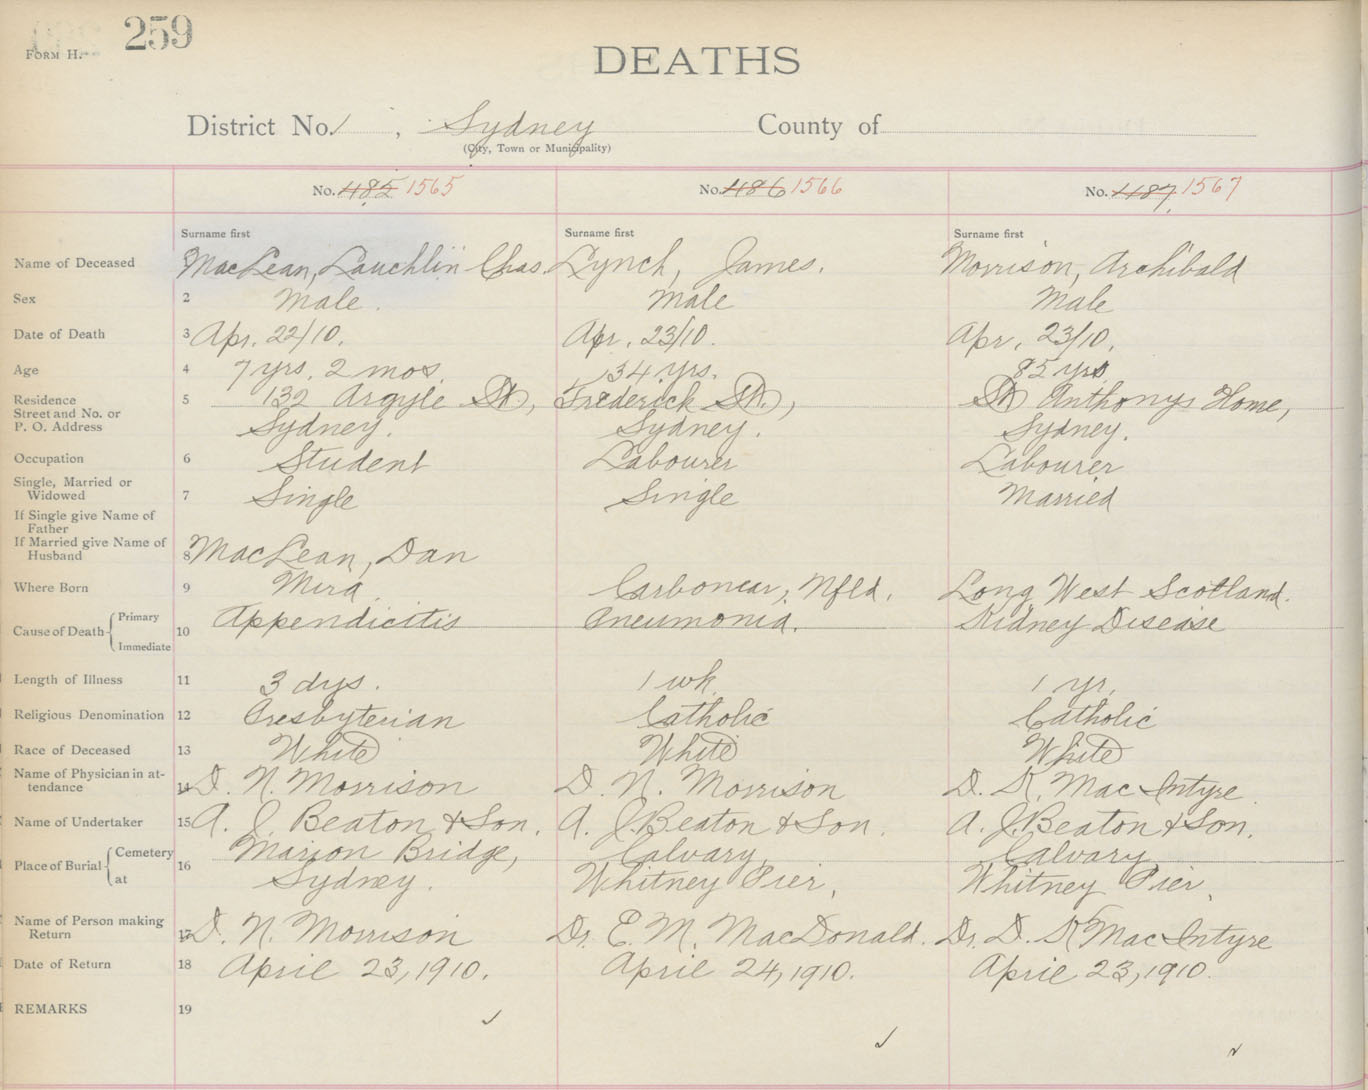 259
FORM H.
DEATHS
District No. 1, Sydney County of
(City, Town or Municipality)
No. 485 1565 No. 486 1566 No. 487 1567
Surname first Surname first Surname first
Name of Deceased 1 MacLean, Lauchlin Chas. Lynch, James. Morrison, Archibald
Sex 2 Male. Male Male
Date of Death 3 Apr. 22/10. Apr. 23/10. Apr. 23/10.
Age 4 7 yrs. 2 mos. 34 yrs. 85 yrs
Residence
Street and No. or 5 132 Argyle St, Frederick St., St Anthonys Home,
P. O. Address Sydney. Sydney. Sydney.
Occupation 6 Student Labourer Labourer
Single, Married or
Widowed 7 Single Single Married
If Single give Name of
Father
If Married give Name of
Husband 8 MacLean, Dan
Where Born 9 Mira Carbonear, Nfld. Long West Scotland.
Cause of Death Primary 10 Appendicitis Pneumonia. Kidney Disease
Immediate
Length of Illness 11 3 dys. 1 wk. 1 yr.
Religious Denomination 12 Presbyterian Catholic Catholic
Race of Deceased 13 White White White
Name of Physician in at-
tendance 14 D. N. Morrison D. N. Morrison D. K. MacIntyre
Name of Undertaker 15 A. J. Beaton & Son. A. J. Beaton & Son. A. J. Beaton & Son.
Place of Burial Cemetery 16 Marion Bridge, Calvary, Calvary
at Sydney. Whitney Pier, Whitney Pier,
Name of Person making
Return 17 D. N. Morrison Dr. E. M. MacDonald. Dr. D. K. MacIntyre
Date of Return 18 April 23, 1910. April 24, 1910. April 23, 1910.
REMARKS 19